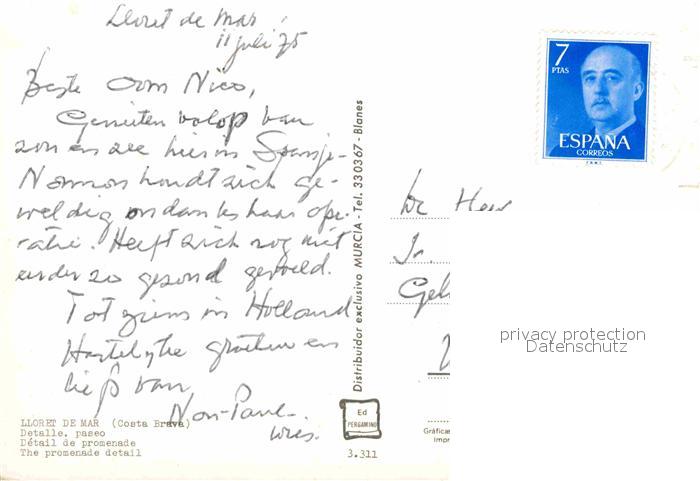 Lloret de Mar,
11 juli 75
Beste Oom Nico,
Genieten volop van
zon en zee hier in Spanje.
houdt zich ge-
weldig ondanks haar ope-
ratie. Heeft zich nog niet
eerder zo gezond gevoeld.
Tot ziens in Holland
Hartelijke groeten en
liefs van
LLORET DE MAR (Costa Brava)
Detalle. paseo
Détail de promenade
The promenade detail
Distribuidor exclusivo MURCIA - Tel. 330367 - Blanes
Ed
PERGAMINO
3.311
7
PTAS
ESPAÑA
CORREOS
De Heer
Ir.
privacy protection
Datenschutz
Gráficas
Impr